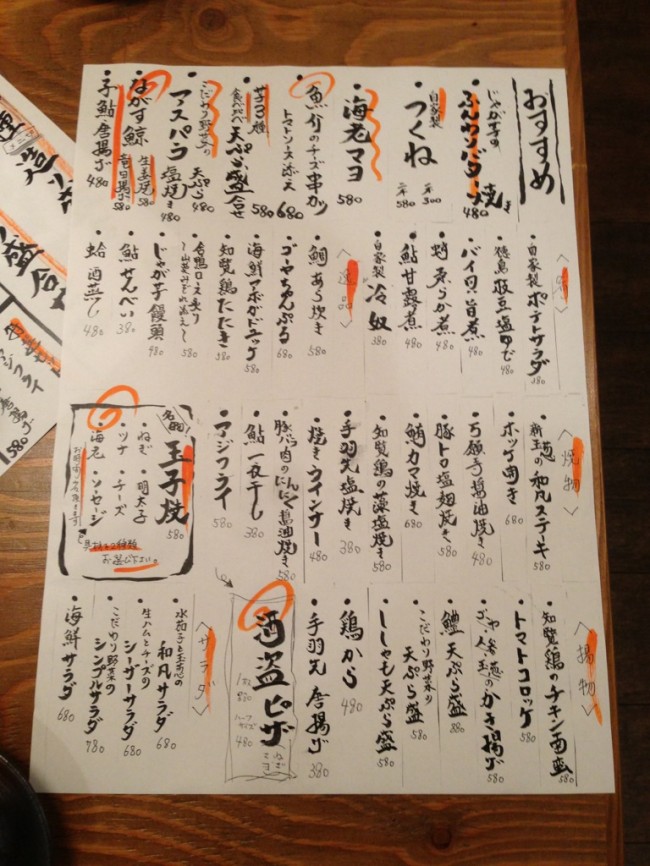 おすすめ
じゃが芋の
ふんわりバター焼き
480
自家製
つくね
一本 300
二本 580
海老マヨ
580
魚介のチーズ串カツ
トマトソース添え
680
芋3種
食べ比べ
天ぷら盛合せ
580
こだわり野菜の
アスパラ
天ぷら 480
塩焼き 480
ながす鯨
生姜焼 580
竜田揚げ 580
子鮎唐揚げ
480
自家製
ポテトサラダ
380
徳島枝豆塩ゆで
480
バイ貝旨煮
480
蛸柔らか煮
480
鮎甘露煮
480
自家製
冷奴
380
〈逸品〉
鯛あら炊き
580
ゴーヤちゃんぷる
680
海鮮アボガドユッケ
580
知覧鶏たたき
580
合鴨ロース煮
〜山葵みぞれ添え〜
580
じゃが芋饅頭
480
鮎せんべい
380
蛤酒蒸し
480
〈焼物〉
新玉葱の和風ステーキ
580
ホッケ開き
680
万願寺醤油焼き
480
豚トロ塩麹焼き
580
鰤カマ焼き
680
知覧鶏の藻塩焼き
580
手羽先塩焼き
380
焼きウインナー
480
豚バラ肉のにんにく醤油焼き
580
鮎一夜干し
380
アジフライ
580
名物
玉子焼
580
ねぎ
明太子
ツナ
チーズ
海老
ソーセージ
お選び下さい。
〈揚物〉
知覧鶏のチキン南蛮
580
トマトコロッケ
580
ゴーヤ・人参・玉葱のかき揚げ
580
鱧天ぷら盛
880
こだわり野菜の
天ぷら盛
580
ししゃも天ぷら盛
580
鶏から
480
手羽先唐揚げ
380
酒盗ピザ
ハーフサイズ
480
〈サラダ〉
水茄子と玉葱の
和風サラダ
680
生ハムとチーズの
シーザーサラダ
680
こだわり野菜の
シンプルサラダ
780
海鮮サラダ
680